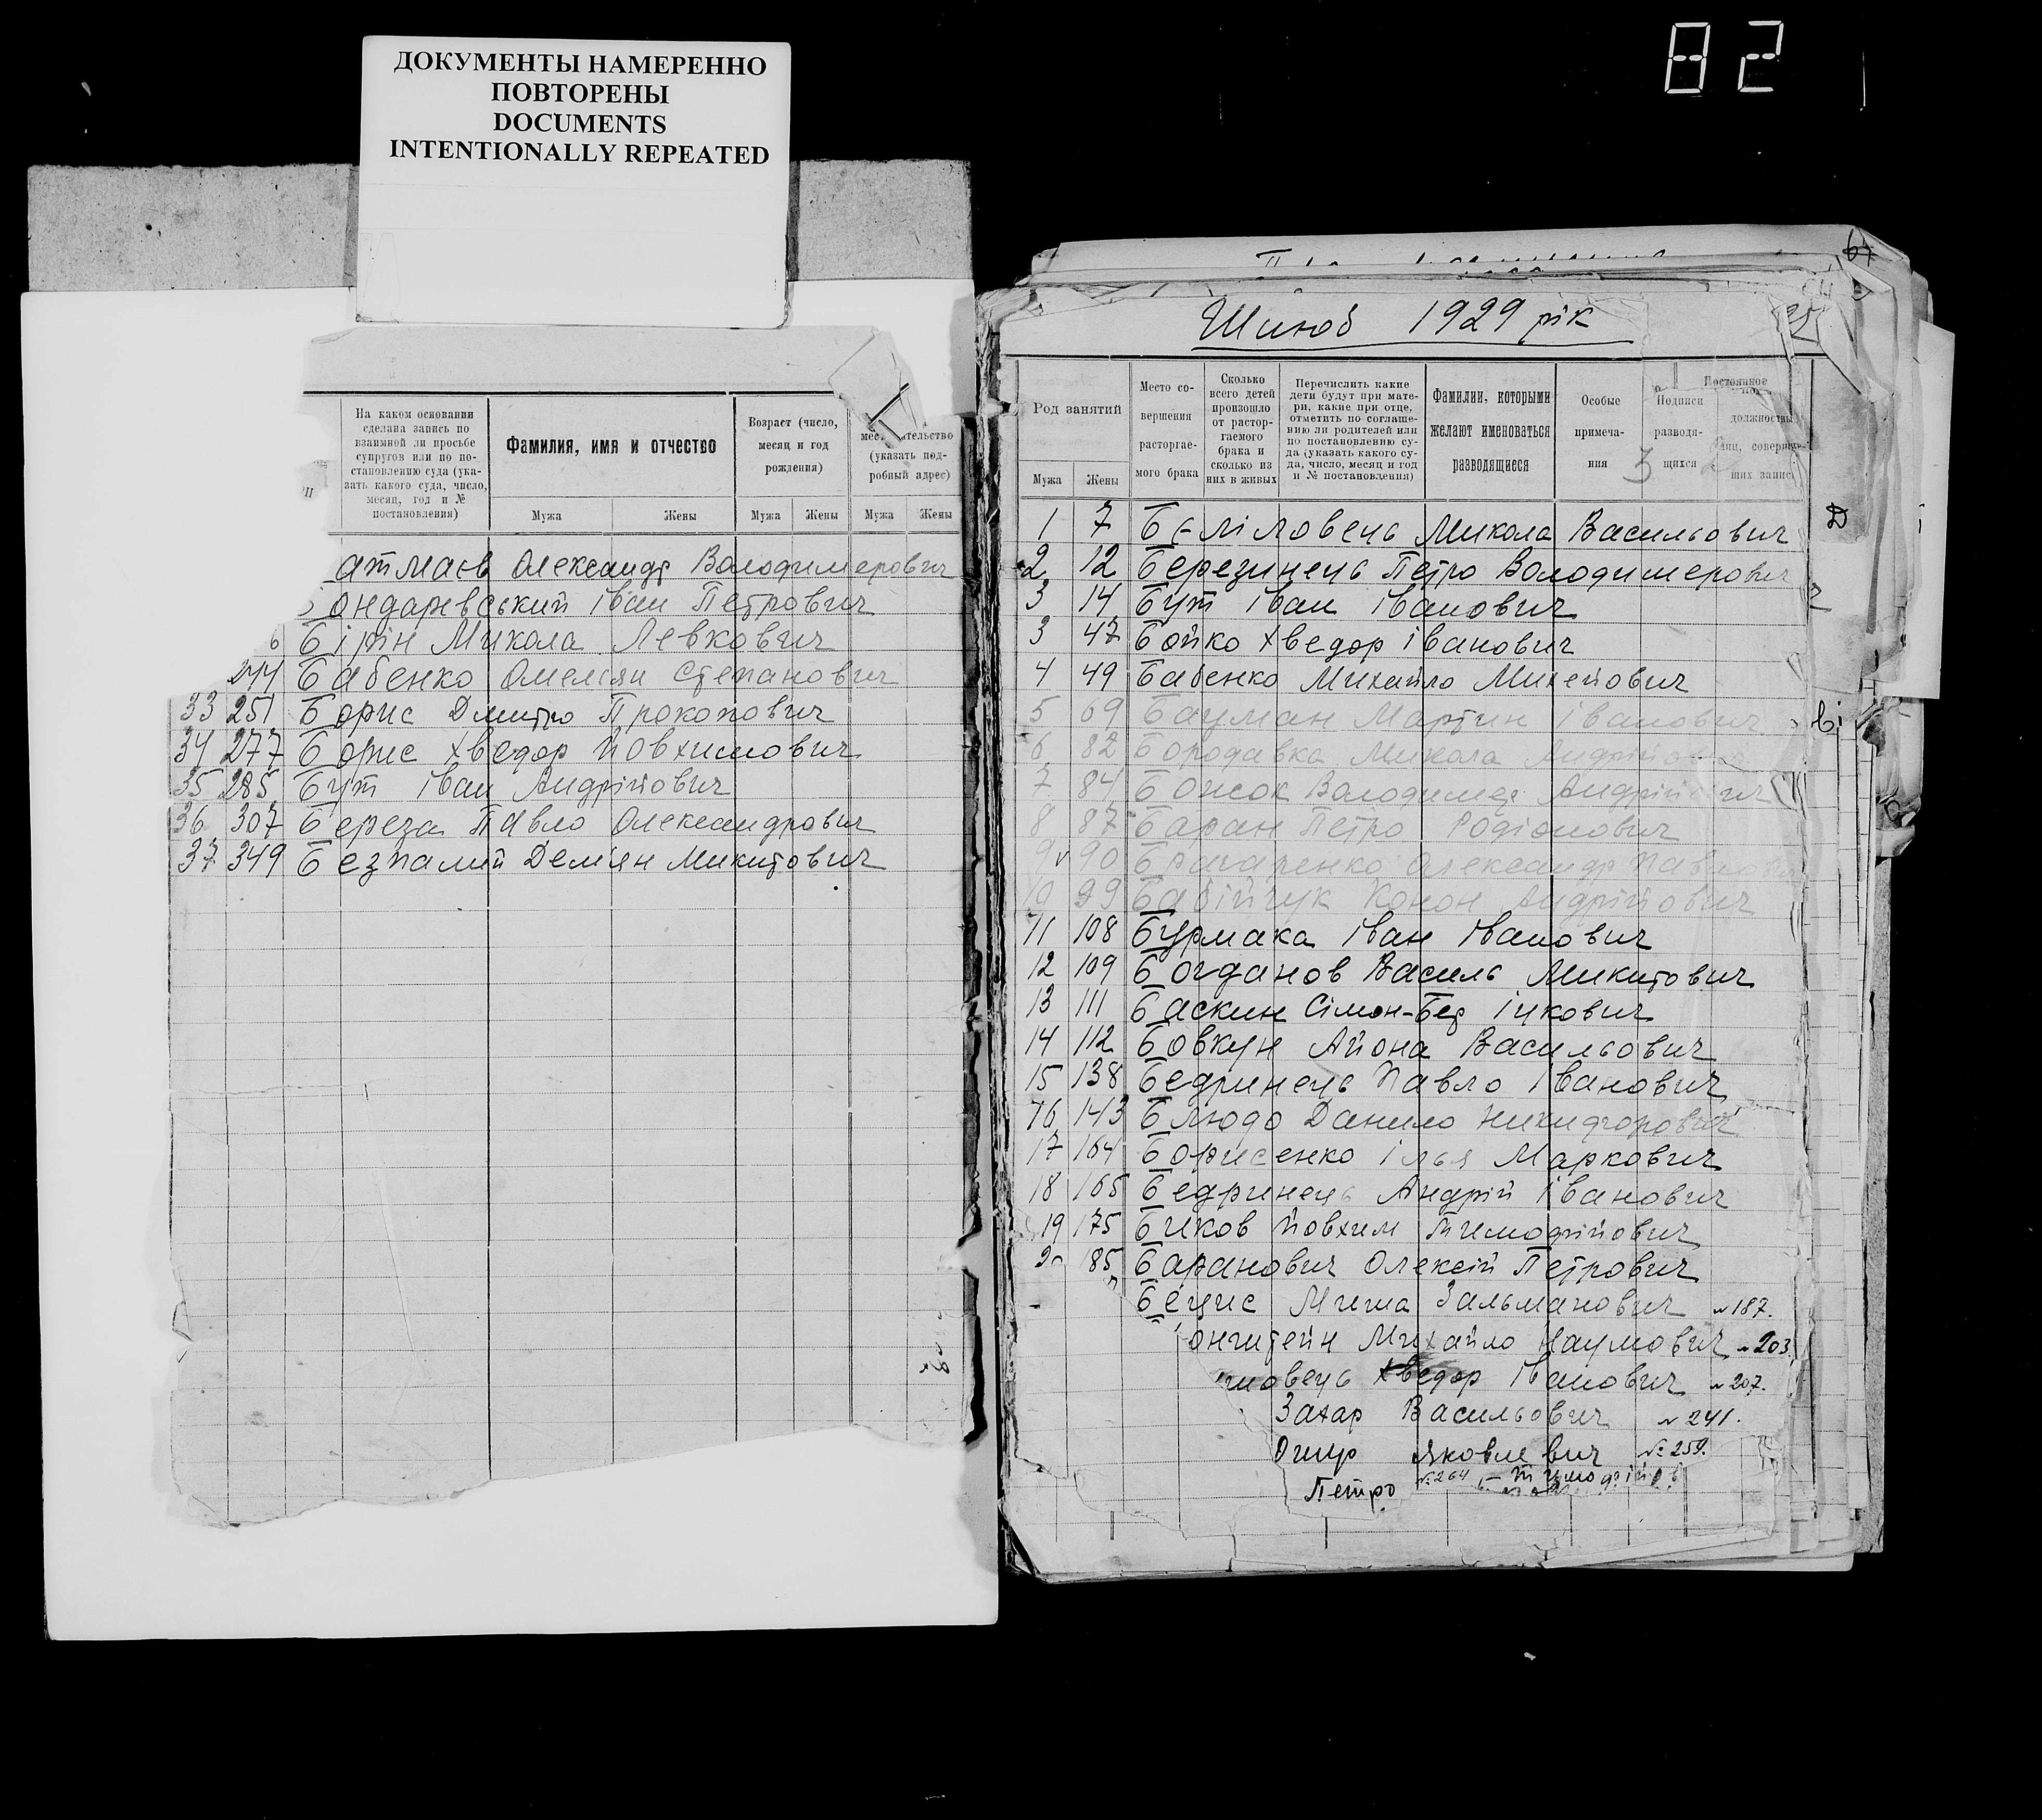 82
ДОКУМЕНТЫ НАМЕРЕННО
ПОВТОРЕНЫ
DOCUMENTS
INTENTIONALLY REPEATED
На каком основании
сделана запись по
взаимной ли просьбе
супругов или по по-
становлению суда (ука-
зать какого суда, число,
месяц, год и №
постановления)
Фамилия, имя и отчество
Мужа
Жены
Возраст (число,
месяц и год
рождения)
Мужа
Жены
(указать под-
робный адрес)
Мужа
Жены
Олександр Володимерович
ондаревський Іван Петрович
6 Бірін Микола Левкович
244 Бабенко Омелян Степанович
33 251 Борис Дмитро Прокопович
34 277 Борис Хведор Йовхимович
35 285 Бут Іван Андрійович
36 307 Береза Павло Олександрович
37 349 Безпалий Демян Микитович
Шлюб 1929 рік
Род занятий
Мужа
Жены
Место со-
вершения
расторгае-
мого брака
Сколько
всего детей
произошло
от растор-
гаемого
брака и
сколько из
них в живых
Перечислить какие
дети будут при мате-
ри, какие при отце,
отметить по соглаше-
нию ли родителей или
по постановлению су-
да (указать какого су-
да, число, месяц и год
и № постановления)
Фамилии, которыми
желают именоваться
разводящиеся
Особые
примеча-
ния
3
Подписи
разводя-
щихся
Постоянное
должностны
лиц, соверши-
ших запис
1 7 Микола Васильович
2 12 Березинець Петро Володимерович
3 14 Бут Іван Іванович
3 47 Бойко Хведор Іванович
4 49 Бабенко Михайло Михейович
5 69 Бауман Мартин Іванович
6 82 Бородавка Микола
7 84 Божок Володимер
8 87 Баран Петро Родіонович
9 90 Олександр
99 Бабійчук Конон Андрійович
11 108 Бурмака Іван Іванович
12 109 Богданов Василь Микитович
13 111 Баскин Сімон-Бер Іцкович
14 112 Бовкун Айона Васильович
15 138 Бедринець Павло Іванович
16 143 Блюдо Данило Никифорович
17 164 Борисенко Ілья Маркович
18 165 Бедринець Андрій Іванович
19 175 Биков Йовхим Тимофійович
85 Баранович Олексій Петрович
Миша Зальманович №187.
онштейн Михайло Наумович №203.
Хведор Іванович №207.
Захар Васильович №241.
Яковлевич №259.
Петро №264